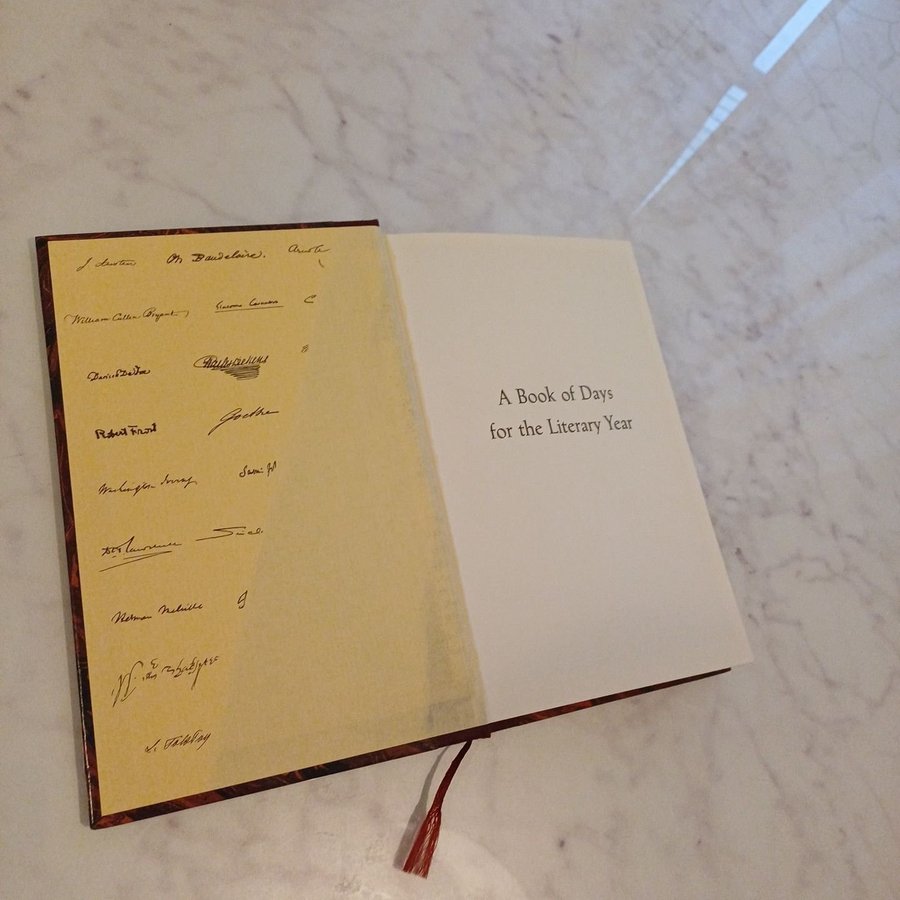 J Austen Ch Baudelaire. Arnold
William Cullen Bryant Giacomo Casanova C
Daniel DeFoe Charles Dickens
Robert Frost Goethe
Washington Irving
D.H. Lawrence
Herman Melville
L. Tolstoy
A Book of Days
for the Literary Year